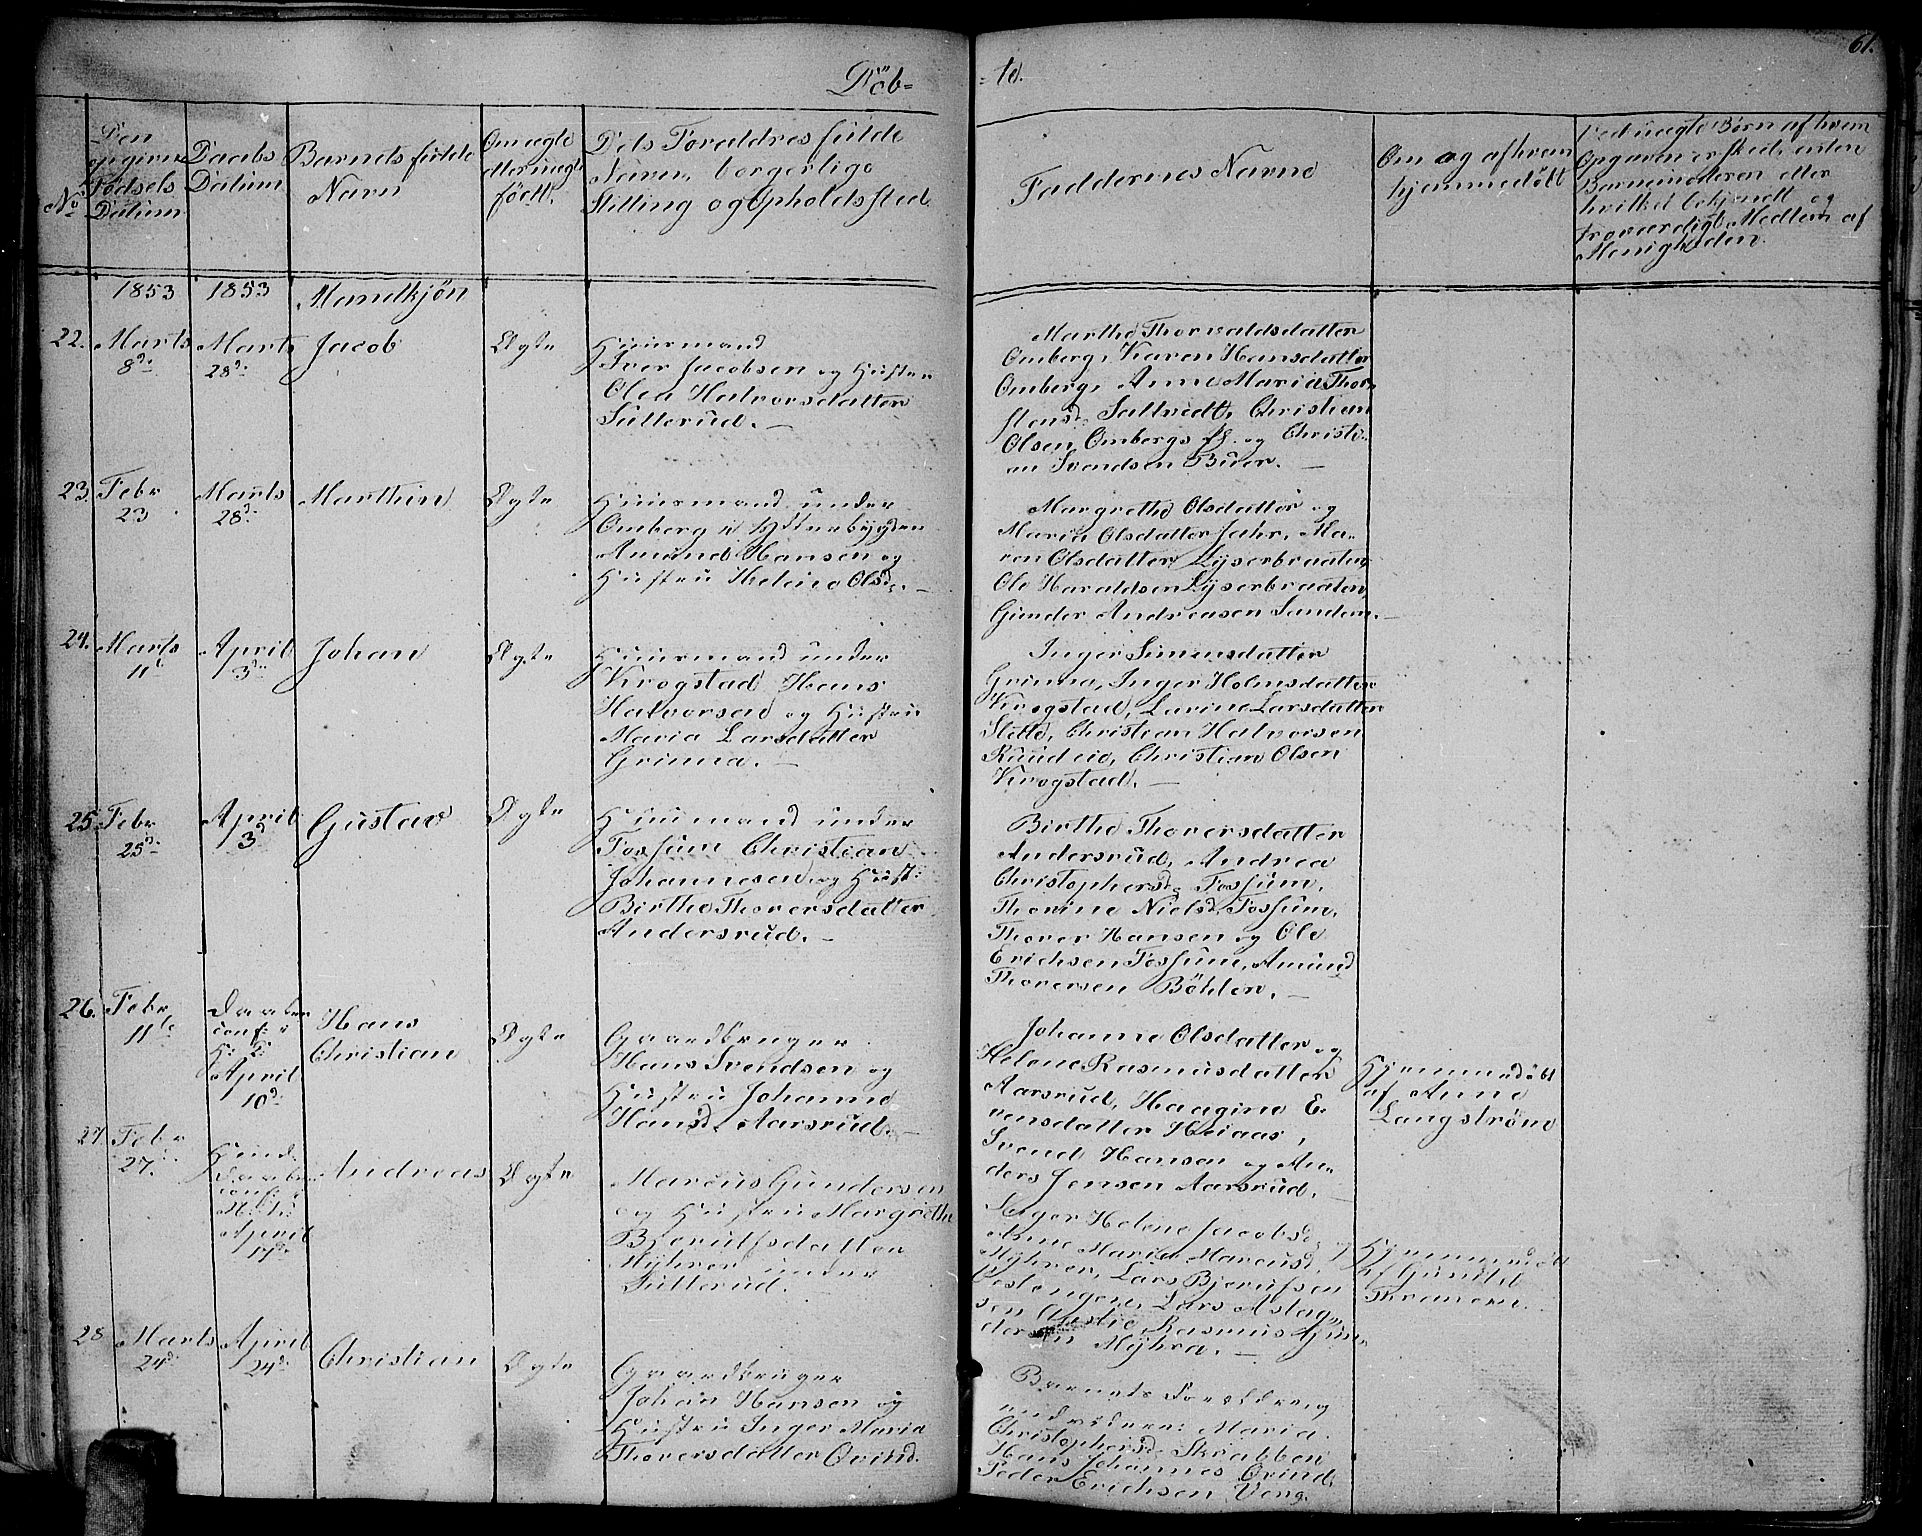 61.
Döb=
=te.
No
Den
opgivne
Fødsels
Datum
Daabs
Datum
Barnets fulde
Navn
Om ægte
eller uægte
født.
Dets Forældres fulde
Navn, borgerlige
Stilling og Opholdssted
Faddernes Navne
Om og af hvem
hjemmedøbt
Ved uægte Børn af hvem
Opgaven er sked, enten
Barnemoderen eller
hvilket bekjendt og
troværdigt Medlem af
Menigheden.
1853
1853
Mandkjön
22.
Marts
8de
Marts
28de
Jacob
Ægte
Huusmand
Iver Jacobsen og Hustru
Olea Halvorsdatter
Sütterud. —
Marthe Thorvaldsdatter
Omberg, Karen Hansdatter
Omberg, Anne Maria Thor
stensd.
Christian
Olsen Ombergs og Christi-
an Svendsen Buer. —
23.
Febr
23
Marts
28de
Marthin
Ægte
Huusmand under
Omberg i Ytterbygden
Amund Hansen og
Hustru Helene Olsd. —
Margrethe Olsdatter og
Maria Olsdatter Jahr, Ma-
ren Olsdatter Lyserbraaten,
Ole Haraldsen Lyserbraaten,
Gunder Andreasen Sundem. —
24.
Marts
11te
April
3de
Johan
Ægte
Huusmand under
Krogstad Hans
Halvorsen og Hustru
Maria Larsdatter
Grinna. —
Inger Simensdatter
Grinna, Inger Holmsdatter
Krogstad, Lavine Larsdatter
Slette, Christian Halvorsen
Ruudeie, Christian Olsen
Krogstad. —
25
Febr
25de
April
3d
Gustav
Ægte
Huusmand under
Fossum Christian
Johannesen og Hust:
Birthe Thorersdatter
Andersrud. —
Birthe Thorersdatter
Andersrud, Andrea
Christophersd. Fossum,
Thorine Nielsd. Fossum,
Thorer Hansen og Ole
Erichsen Fossum, Amund
Thorersen Böhlen. —
26.
Febr
11te
Daaben
conf: i
K:
April
10de
Hans
Christian
Ægte
Gaardbruger
Hans Svendsen og
Hustru Johanne
Hansd. Aarsrud. —
Johanne Olsdatter og
Helene Rasmusdatter
Aarsrud, Haagine E-
vensdatter Heiaas,
Svend Hansen og An-
ders Jensen Aarsrud. —
Hjemmedøbt
af Anne
Langströme
27
Febr
27.
Daaben
conf: i
April
17de
Andreas
Ægte
Marcus Gundersen
og Hustru Margrethe
Bjørulfsdatter
Myhrer under
Sütterud.
Inger Helene Jacobsd. og
Anne Maria Marcusd.
Myhrer, Lars Bjørulfsen
Lars Aslag-
sen
Rasmus Gun-
dersen Myhra. —
Hjemmedøbt
af Gunild
28
Marts
24de
April
24de
Christian
Ægte
Gaardbruger
Johan Hansen og
Hustru Inger Maria
Thorersdatter Qvind.
Barnets Forældre og
Maria
Christophersd. Skrabben
Hans Johannes Qvind,
Peder Erichsen Veng.